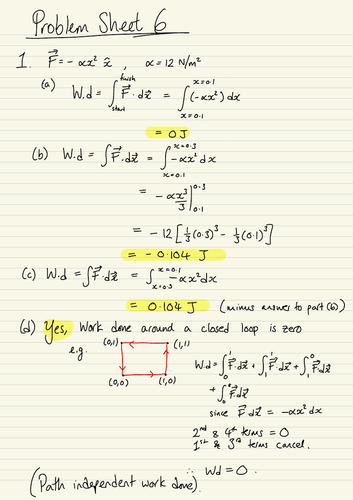 Problem Sheet 6
1. F⃗ = - αx² x̂ , α = 12 N/m²
(a) W.d = ∫_start^finish F⃗ . dx⃗ = ∫_{x=0.1}^{x=0.1} (-αx²) dx
= 0 J
(b) W.d = ∫ F⃗ . dx⃗ = ∫_{x=0.1}^{x=0.3} -αx² dx
= -αx³/3 |_{0.1}^{0.3}
= -12 [ 1/3 (0.3)³ - 1/3 (0.1)³ ]
= - 0.104 J
(c) W.d = ∫ F⃗ . dx⃗ = ∫_{x=0.3}^{x=0.1} -αx² dx
= 0.104 J (minus answer to part (b))
(d) Yes, Work done around a closed loop is zero
e.g.
(0,1) (1,1)
(0,0) (1,0)
W.d = ∫_0^1 F⃗ . dx⃗ + ∫_1^1 F⃗ . dx⃗ + ∫_1^0 F⃗ . dx⃗
+ ∫_0^0 F⃗ . dx⃗
since F⃗ . dx⃗ = -αx² dx
2nd & 4th terms = 0
1st & 3rd terms cancel.
∴ Wd = 0 .
(Path independent work done)